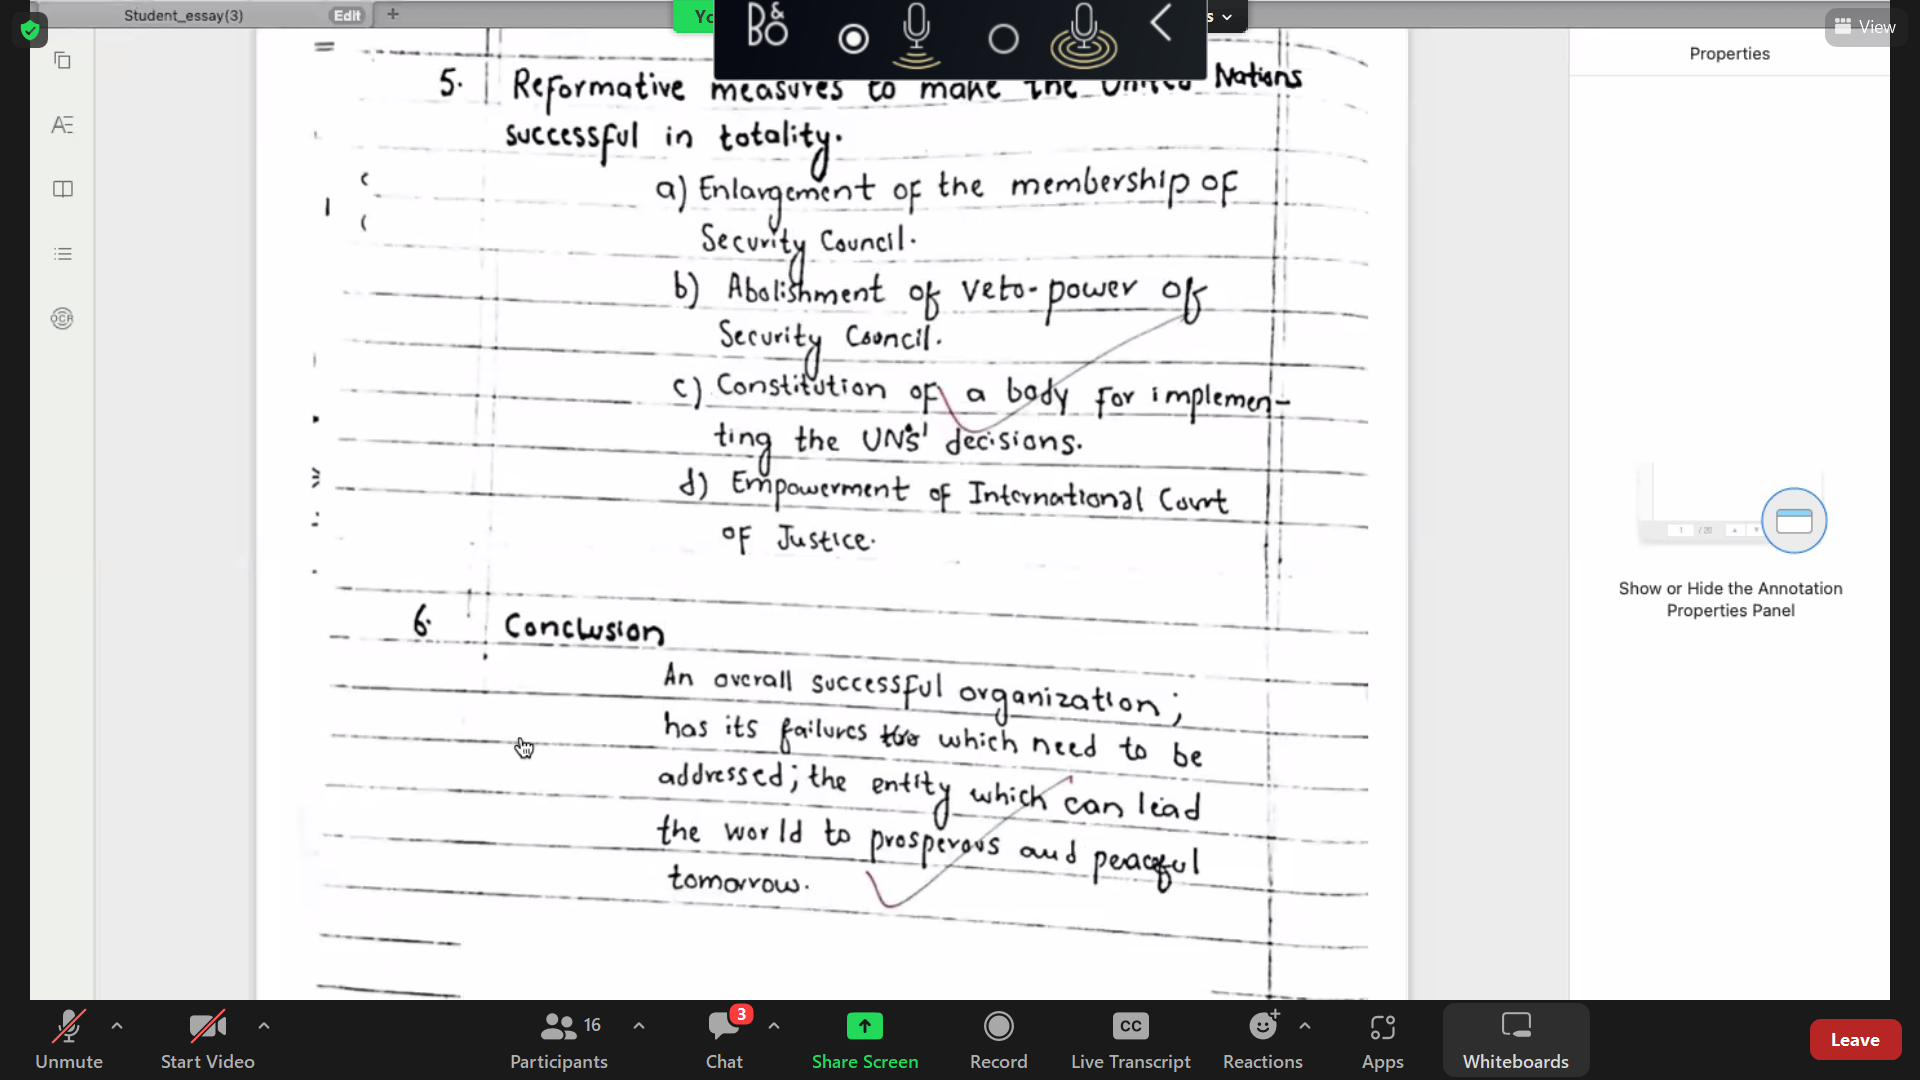 Student_essay(3)
Edit
+
Yo
B&O
s
View
Properties
5. Reformative measures to make the United Nations
successful in totality.
a) Enlargement of the membership of
Security Council.
b) Abolishment of veto-power of
Security Council.
c) Constitution of a body for implemen-
ting the UN's' decisions.
d) Empowerment of International Court
of Justice.
6. Conclusion
An overall successful organization;
has its failures too which need to be
addressed; the entity which can lead
the world to prosperous and peaceful
tomorrow.
OCR
1 / 20
Show or Hide the Annotation
Properties Panel
Unmute
Start Video
16
Participants
3
Chat
Share Screen
Record
CC
Live Transcript
Reactions
Apps
Whiteboards
Leave